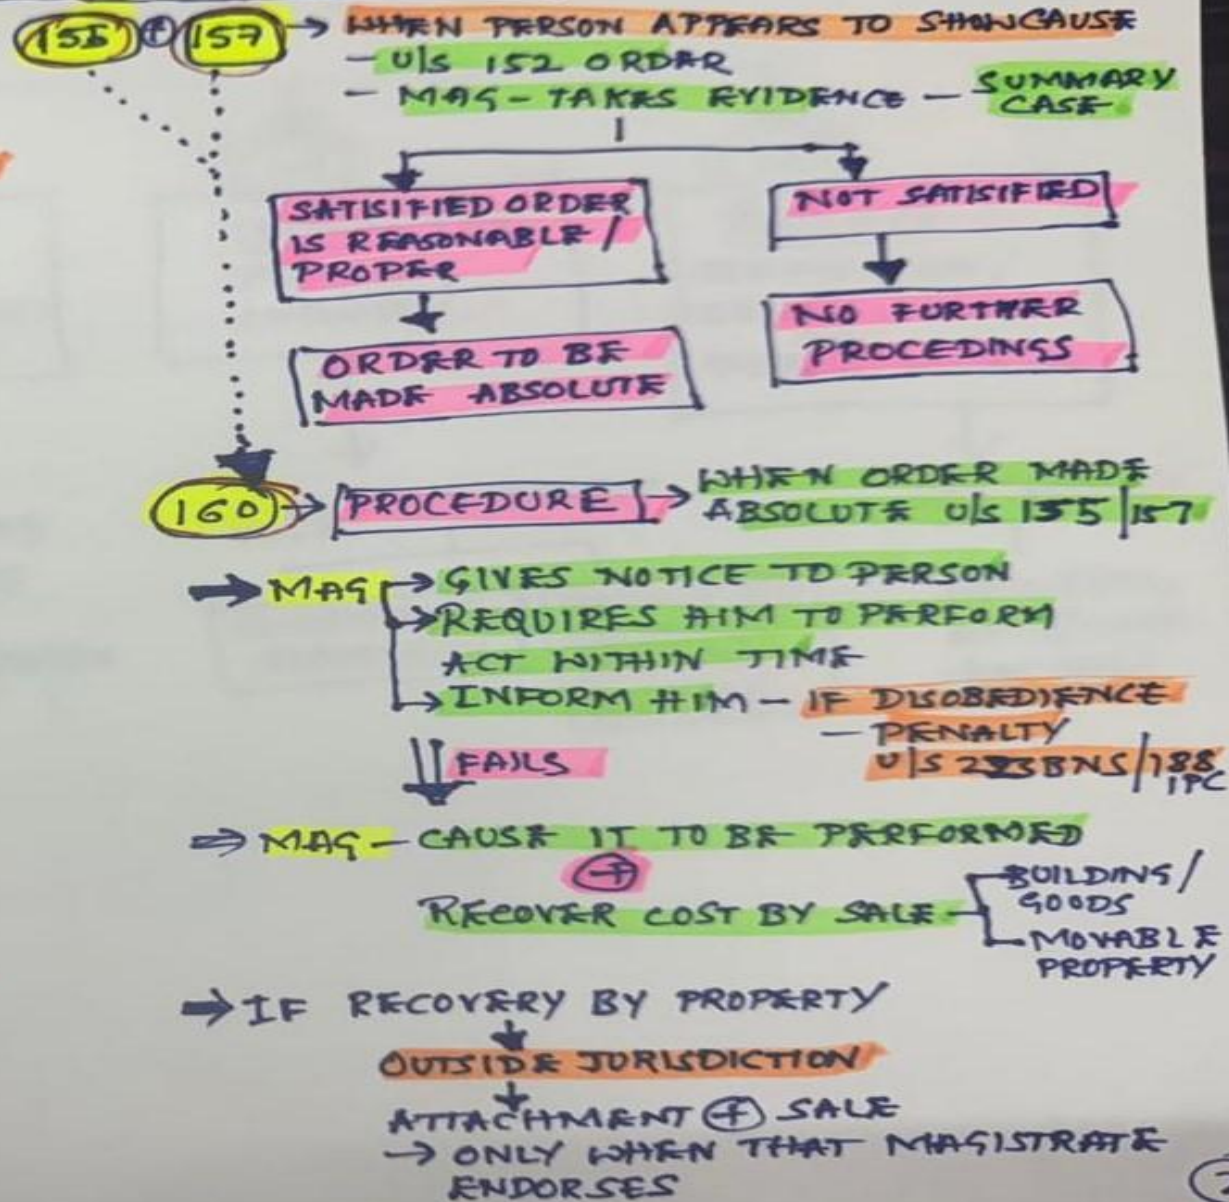 155 + 157 → WHEN PERSON APPEARS TO SHOWCAUSE
- U/S 152 ORDER
- MAG - TAKES EVIDENCE - SUMMARY
CASE
SATISIFIED ORDER
IS REASONABLE /
PROPER
NOT SATISIFIED
ORDER TO BE
MADE ABSOLUTE
NO FURTHER
PROCEDINGS
160 → PROCEDURE → WHEN ORDER MADE
ABSOLUTE U/S 155/157
⇒ MAG → GIVES NOTICE TO PERSON
→ REQUIRES HIM TO PERFORM
ACT WITHIN TIME
→ INFORM HIM - IF DISOBEDIENCE
- PENALTY
U/S 223 BNS/188
IPC
FAILS
⇒ MAG - CAUSE IT TO BE PERFORMED
+
RECOVER COST BY SALE
BUILDING /
GOODS
MOVABLE
PROPERTY
⇒ IF RECOVERY BY PROPERTY
OUTSIDE JURISDICTION
ATTACHMENT + SALE
→ ONLY WHEN THAT MAGISTRATE
ENDORSES